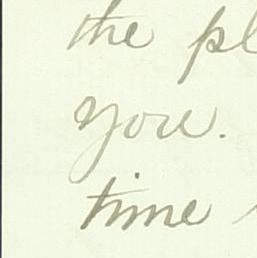 the pl
you.
time